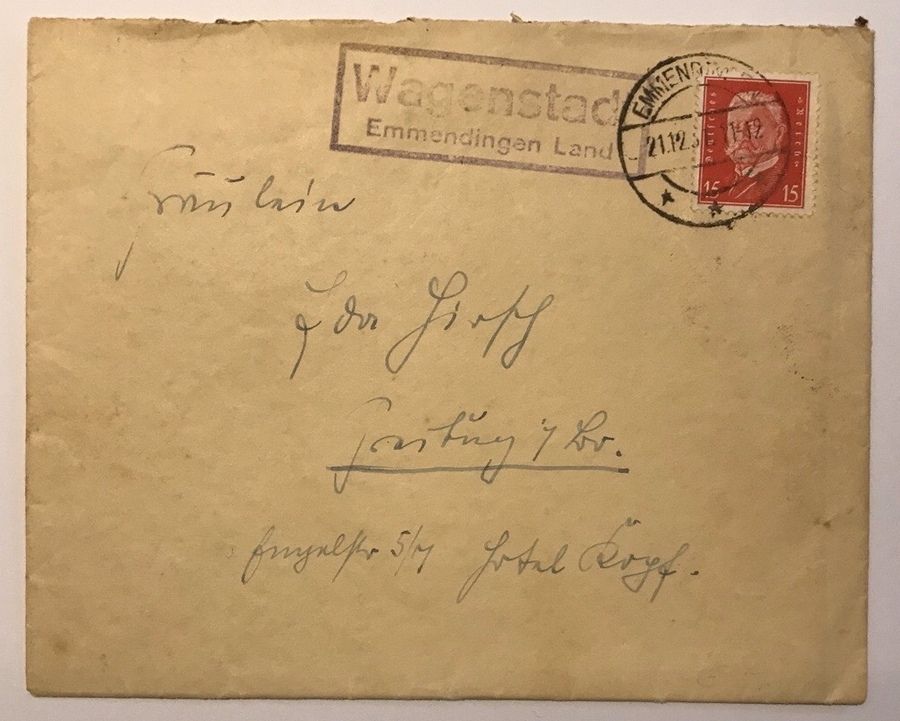 Wagenstad
Emmendingen Land
EMMENDINGEN
21.12.3 11-12
Deutsches Reich
15 15
Fräulein
Ida Hirsch
Freiburg i/Br.
Engelstr 5/7 Hotel Kopf.